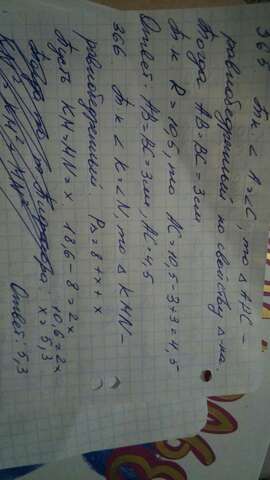 365. Т.к. ∠A=∠C, то △ABC –
равнобедренный по свойству △-ка.
Тогда AB=BC=3см
Т.к P=10,5, то AC=10,5-3+3=4,5
Ответ: AB=BC=3см, AC=4,5
366 Т.к ∠K=∠N, то △KMN-
равнобедренный. P△=8+x+x
Пусть KM=MN=x 18,6-8=2x
10,6=2x
x=5,3
Тогда по т. Пифагора
KN² = KM² + MN²
Ответ: 5,3